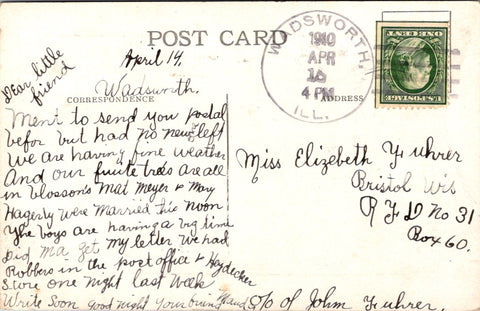 POST CARD
WADSWORTH,
1910
APR
4 PM
ILL.
U.S. POSTAGE
ONE CENT
April 14,
Dear little
friend
Wadsworth.
CORRESPONDENCE
ADDRESS
Ment to send you postal
befor but had no new left
We are having fine weather
And our fruite trees are all
in blossom's Mat Meyer & Mary
Hagerty were Married this noon
The boys are having a big time
Did ma get my letter We had
Robbers in the post office & Heydecker
Store one night last week
Write Soon good night Your
Miss Elizebeth Fuhrer
Bristol Wis
R F D No 31
Box 60.
c/o of John Fuhrer.